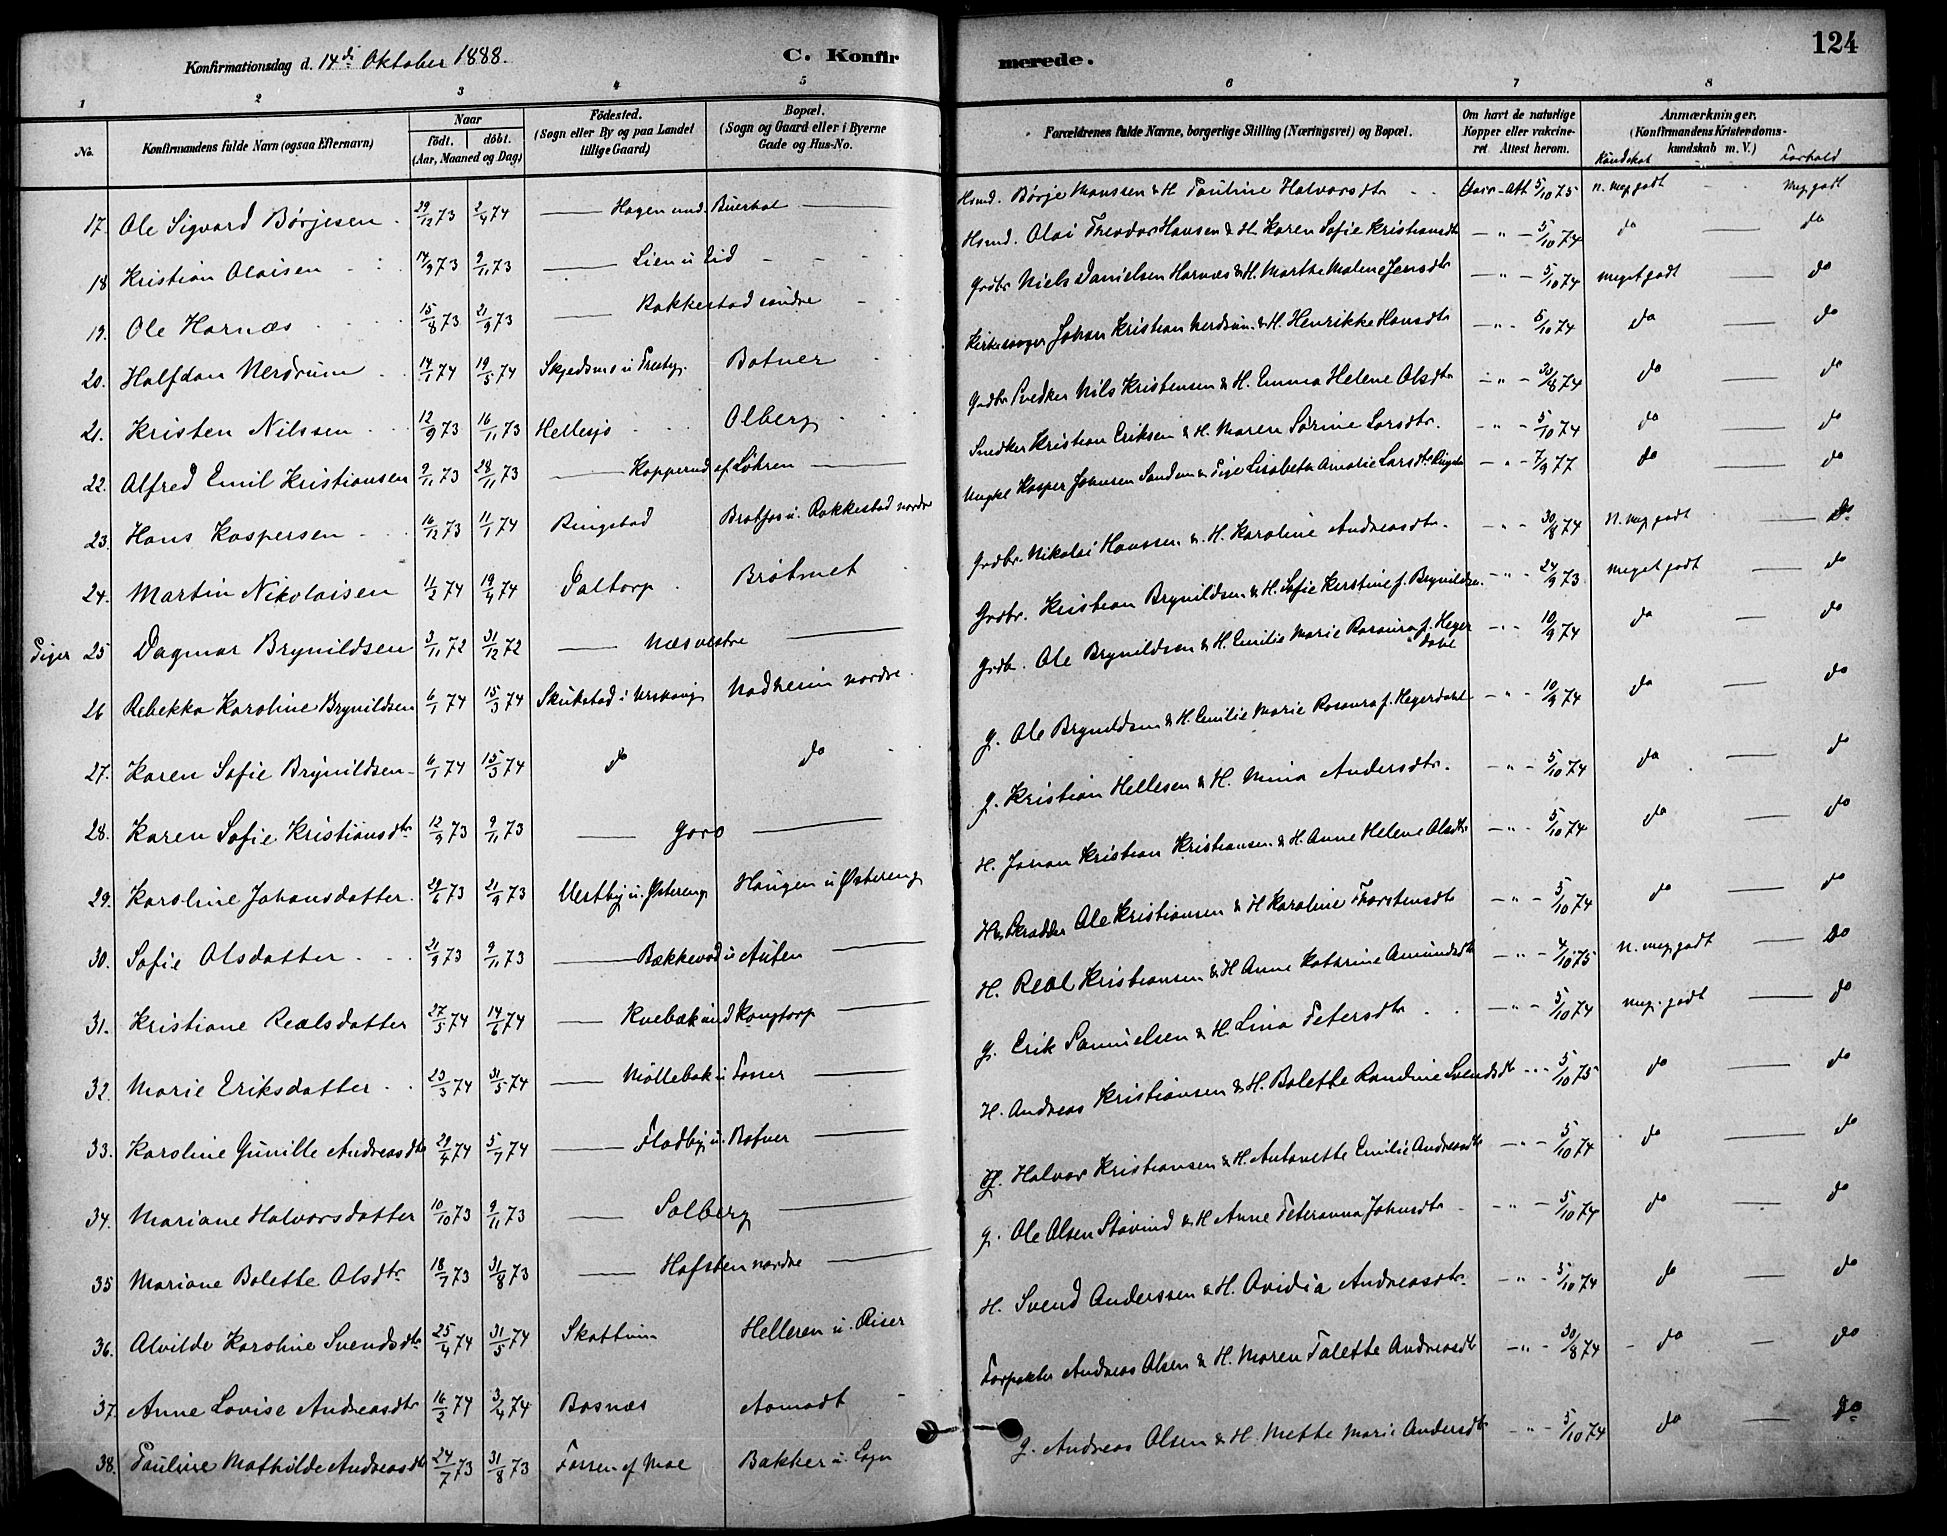 124
Konfirmationsdag d. 14de Oktober 1888.
C. Konfirmerede.
1 2 3 4 5 6 7 8
No.
Konfirmandens fulde Navn (ogsaa Efternavn)
Naar
født. døbt.
(Aar, Maaned og Dag)
Fødested.
(Sogn eller By og paa Landet tillige Gaard)
Bopæl.
(Sogn og Gaard eller i Byerne Gade og Hus-No.
Forældrenes fulde Navne, borgerlige Stilling (Næringsvei) og Bopæl.
Om havt de naturlige Kopper eller vakcineret Attest herom.
Anmærkninger.
(Konfirmandens Kristendomskundskab m. V.)
Kundskab Forhold
17. Ole Sigvard Børjesen 29/12 73 2/4 74 — Hagen und. Buerhol — Hsmd. Børje Monssen & H. Pauline Halvorsdtr Vacc. Att 5/10 75 n. meg. godt Meg. godt
18 Kristian Olaisen 14/9 73 9/11 73 — Lien u. Lid Hsmd. Olai Theodor Hansen & H. Karen Sofie Kristiansdtr — " — 5/10 74 do — do
19. Ole Harnæs 15/8 73 21/9 73 — Bakkestad søndre Grdbr Niels Danielsen Harnæs & H. Marthe Malene Jensdtr — " — 5/10 74 meget godt — do
20. Halfdan Nerdrum 14/1 74 19/5 74 Skjedsmo u Presteg. Botner Kirkesanger Johan Kristian Nerdrum & H. Henrikke Hansdtr — " — 5/10 74 do — do
21. Kristen Nilssen 12/9 73 16/11 73 Hellesjø Olberg Grdbr Snedker Nils Kristensen & H. Emma Helene Olsdtr — " — 30/8 74 do — do
22. Alfred Emil Kristiansen 9/11 73 28/11 73 — Kopperud af Løhren — Snedker Kristian Eriksen & H. Maren Sørine Larsdtr. — " — 5/10 74 do — do
23. Hans Kaspersen 16/12 73 11/1 74 Ringstad Bratfos u. Rakkestad nordre Ungkl Kasper Johnsen Sanden & Pige Lisabeth Amalie Larsdtr — " — 7/9 77 do — do
24. Martin Nikolaisen 11/2 74 19/4 74 Daltorp Bråtmet Grdbr. Nikolai Hanssen & H. Karoline Andreasdtr. — " — 30/8 74 N. meg godt — Do
Piger 25 Dagmar Brynildsen 3/11 72 31/12 72 — Næs vestre — Grdbr. Kristian Brynildsen & H. Sofie Kerstine f. Brynildsen — " — 24/9 73 meget godt — do
26 Rebekka Karoline Brynildsen 6/1 74 15/3 74 Skukstad i Urskoug Nadheim nordre Grdb. Ole Brynildsen & H. Emilie Marie Rosaura f. Hegerdahl — " — 10/9 74 do — do
27. Karen Sofie Brynildsen 6/1 74 15/3 74 do do G. Ole Brynildsen & H. Emilie Marie Rosaura f. Hegerdahl — " — 10/9 74 do — do
28. Karen Sofie Kristiansdtr 12/9 73 9/11 73 — Goro — G. Kristian Hellesen & H. Mina Andersdtr. — " — 5/10 74 do — do
29. Karoline Johansdatter 29/6 73 21/9 73 Vestby u. Østereng Haugen u Østereng H. Johan Kristian Kristiansen & H. Anne Helene Olsdtr — " — 5/10 74 do — do
30. Sofie Olsdatter 21/9 73 9/11 73 — Bækkevad u Auten — Skrædder Ole Kristiansen & H Karoline Thorstensdtr — " — 5/10 74 do — do
31. Kristiane Realsdatter 27/5 74 14/6 74 — Kvebæk und Kongtorp — H. Real Kristiansen & H Anne Kathrine Amundsdtr — " — 4/10 75 n. meg. godt — Do
32. Marie Eriksdatter 23/3 74 31/5 74 — Møllebak u Fosser — G. Erik Samuelsen & H. Lina Petersdtr — " — 5/10 74 meg. godt — do
33. Karoline Gunille Andreasdtr 29/4 74 5/7 74 — Fladby u. Botner — H. Andreas Kristiansen & H. Bolette Randine Svendsdtr — " — 5/10 75 do — do
34. Mariane Halvorsdatter 10/10 73 9/11 73 — Solberg — G. Halvor Kristiansen & H. Antonette Emilie Andreasdtr — " — 5/10 74 do — do
35 Mariane Bolette Olsdtr 18/7 73 31/8 73 — Hafsten nordre — G. Ole Olsen Støvind & H Anne Peteranna Johnsdtr — " — 5/10 74 do — do
36. Alvilde Karoline Svendsdtr 25/4 74 31/5 74 Skattum Helleren u. Riser H. Svend Anderssen & H. Avidia Andreasdtr. — " — 5/10 74 do — do
37. Anne Lovise Andreasdtr 16/2 74 3/4 74 Bosnæs Aamodt Forpakter Andreas Olsen & H. Maren Talette Andreasdtr — " — 30/8 74 do — do
38. Pauline Mathilde Andreasdtr 24/7 73 31/8 73 Fossen af Moe Bakker u. Logn G. Andreas Olsen & H. Mette Marie Andersdtr — " — 5/10 74 do — do